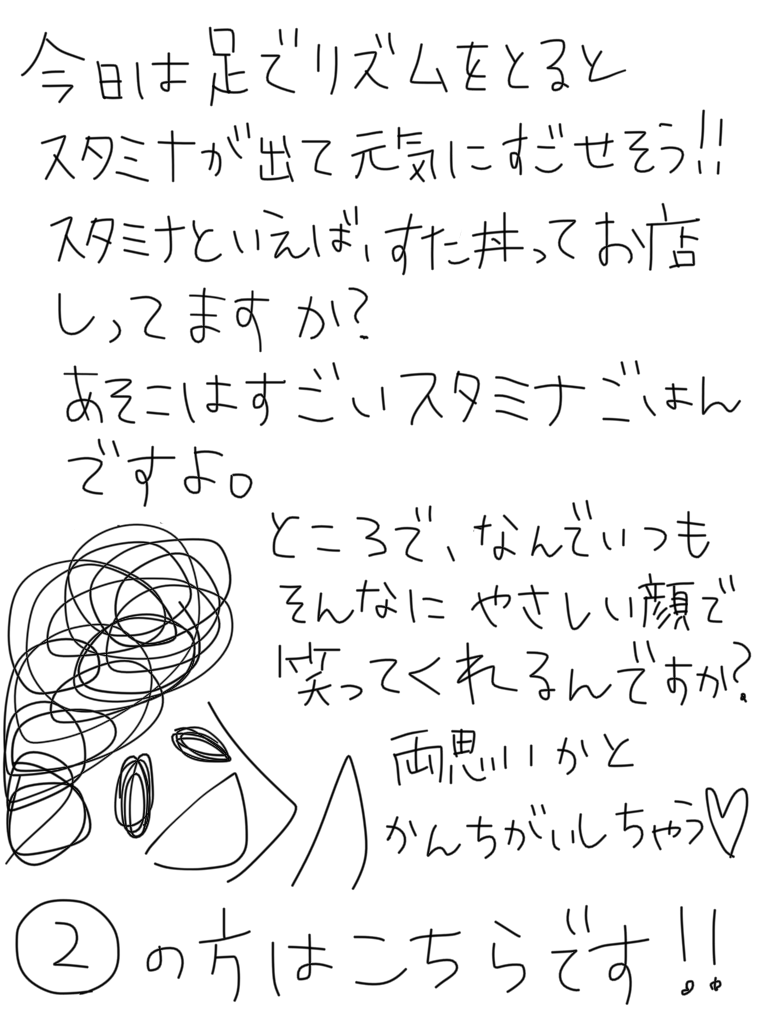 今日は足でリズムをとると
スタミナが出て元気にすごせそう!!
スタミナといえば、すた丼ってお店
しってますか?
あそこはすごいスタミナごはん
ですよ。
ところで、なんでいつも
そんなに やさしい顔で
笑ってくれるんですか?
両思いかと
かんちがいしちゃう♡
②の方はこちらです!!